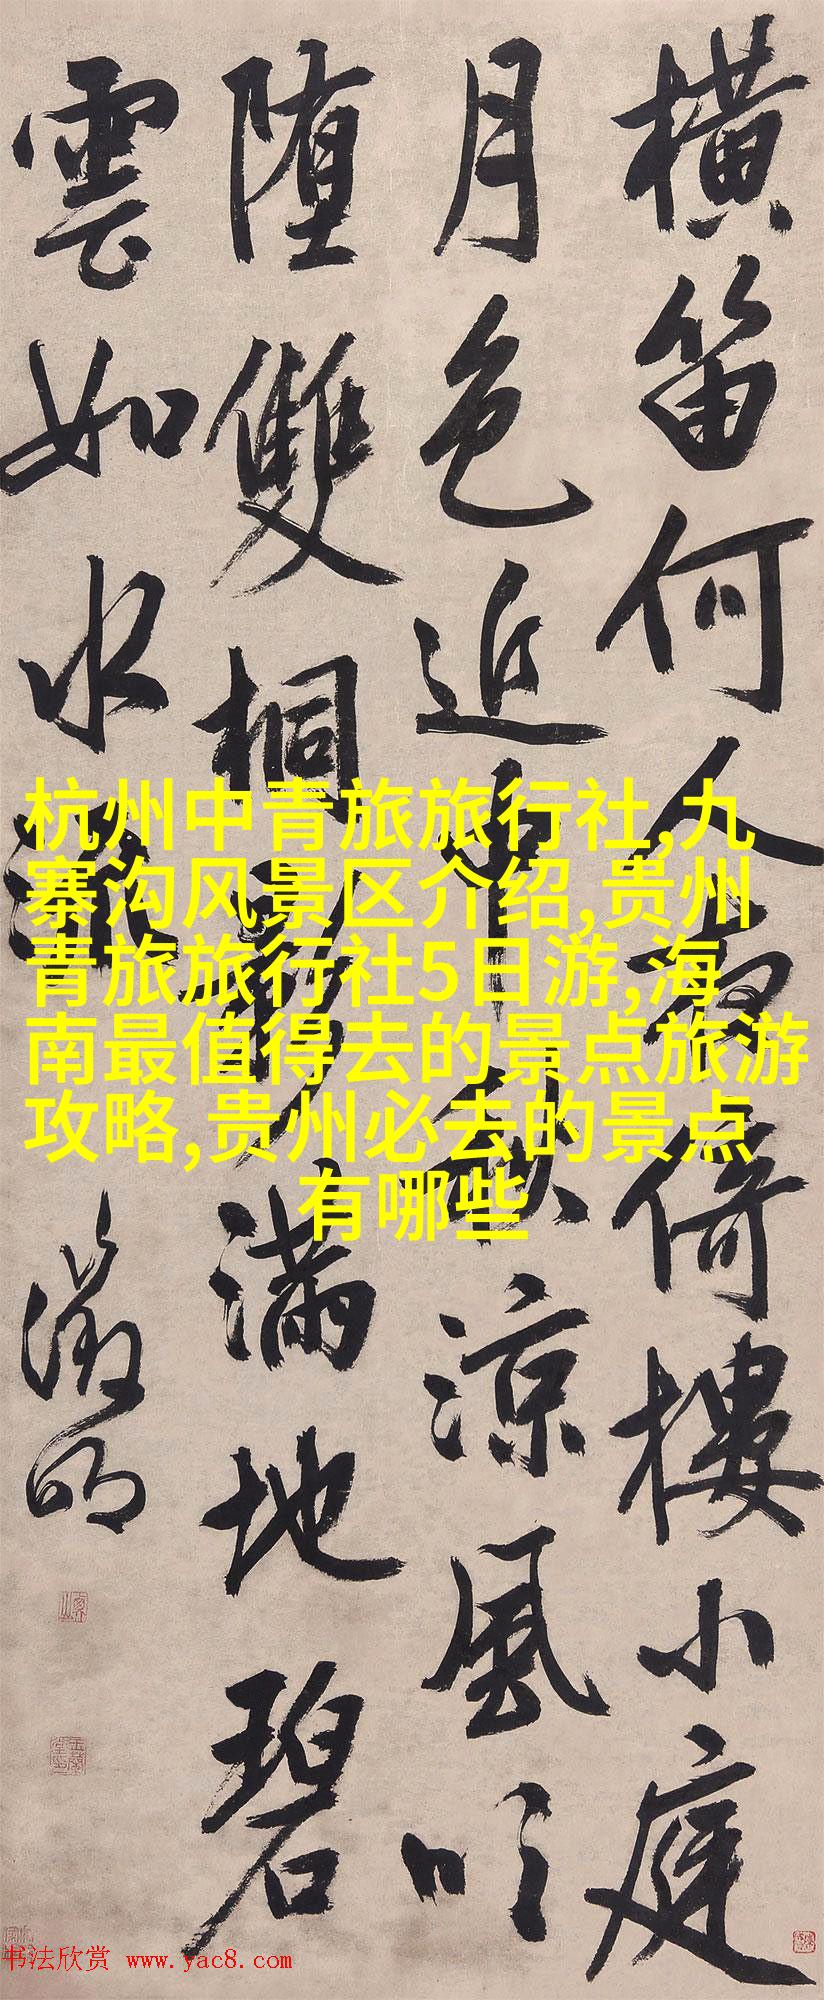 横笛何人夜倚樓小庭
月色近中秋涼風吹
堕雙桐影滿地碧
雲如水流
徵明
杭州中青旅旅行社,九
寨沟风景区介绍,贵州
青旅旅行社5日游,海
南最值得去的景点旅游
攻略,贵州必去的景点
有哪些
书法欣赏 www.yac8.com